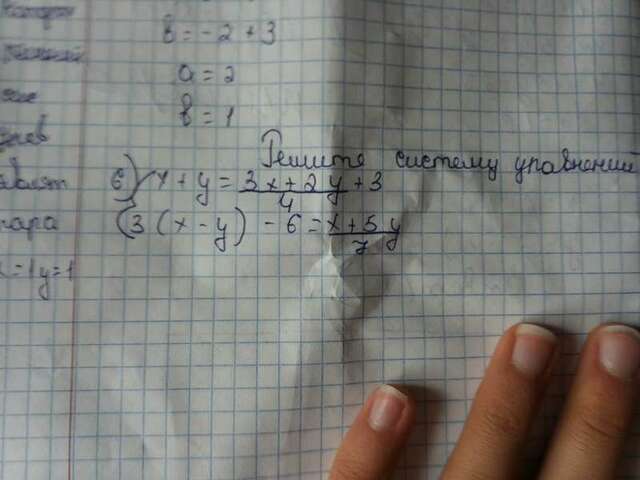 b = -2 + 3
a = 2
b = 1
Решите систему уравнений
6) x + y = 3x + 2y + 3
4
3 (x - y) - 6 = x + 5y
7
пара
x=1 y=1